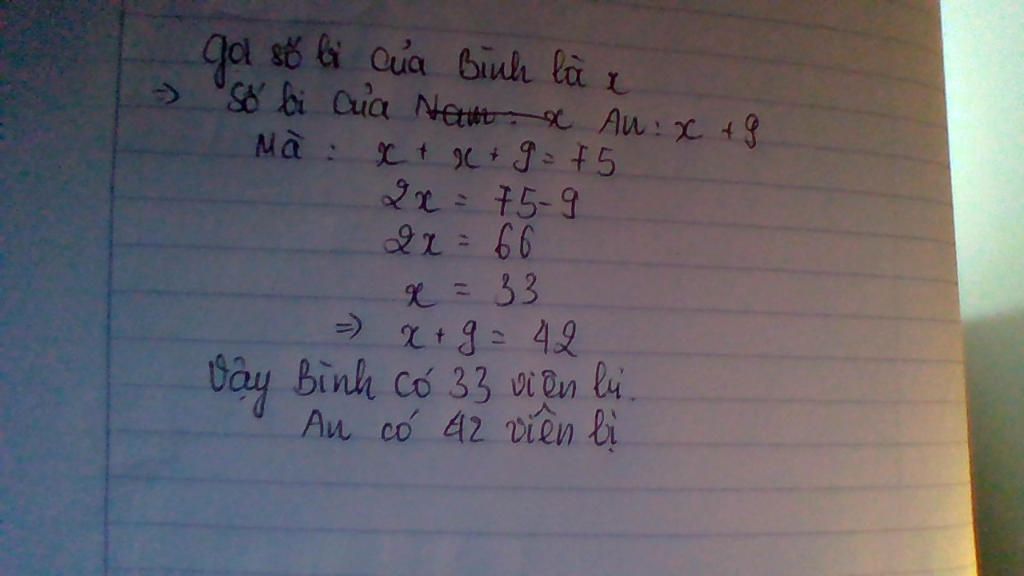 Gọi số bi của Bình là x
=> Số bi của Nam: x An: x + 9
Mà : x + x + 9 = 75
2x = 75-9
2x = 66
x = 33
=> x + 9 = 42
Vậy Bình có 33 viên bi.
An có 42 viên bi